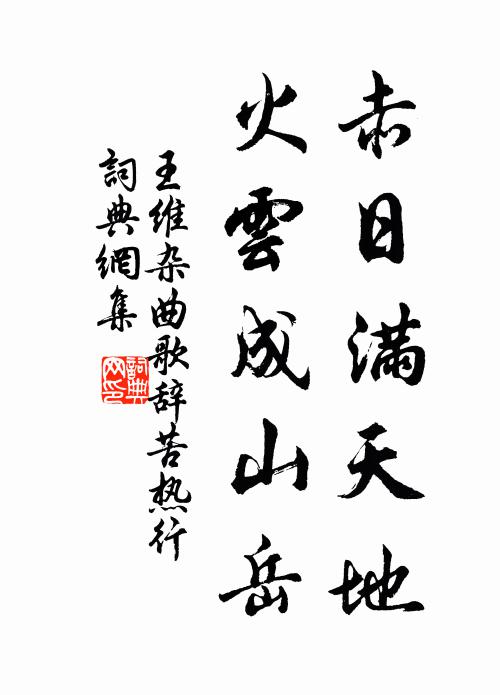 赤日满天地
火雲成山岳
王维杂曲歌辞苦热行
詞典網集
詞典
网印